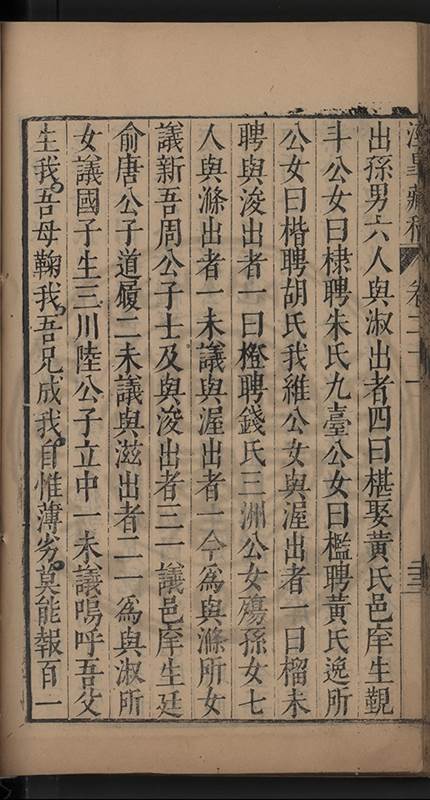 涇臯藏稿 卷二十一
出孫男六人與淑出者四曰椹娶黃氏邑庠生覲
斗公女曰棣聘朱氏九臺公女曰檻聘黃氏逸所
公女曰楷聘胡氏我維公女與渥出者一曰榴未
聘與浚出者一曰橙聘錢氏三洲公女殤孫女七
人與滌出者一未議與渥出者一今爲與滌所女
議新吾周公子士及與浚出者三一議邑庠生廷
俞唐公子道履二未議與滋出者二一爲與淑所
女議國子生三川陸公子立中一未議嗚呼吾父
生我吾母鞠我吾兄成我自惟薄劣莫能報百一